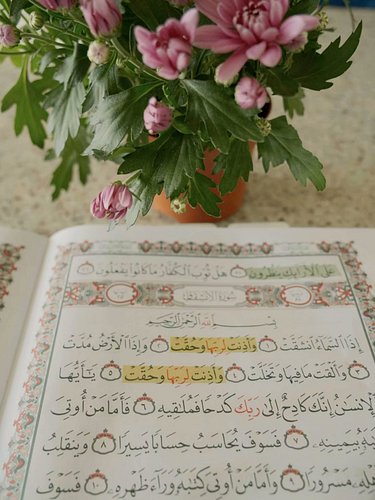 عَلَى ٱلْأَرَآئِكِ يَنظُرُونَ ٣٥ هَلْ ثُوِّبَ ٱلْكُفَّارُ مَا كَانُوا۟ يَفْعَلُونَ ٣٦
سُورَةُ الانْشِقَاقِ
بِسْمِ ٱللَّهِ ٱلرَّحْمَٰنِ ٱلرَّحِيمِ
إِذَا ٱلسَّمَآءُ ٱنشَقَّتْ ١ وَأَذِنَتْ لِرَبِّهَا وَحُقَّتْ ٢ وَإِذَا ٱلْأَرْضُ مُدَّتْ
٣ وَأَلْقَتْ مَا فِيهَا وَتَخَلَّتْ ٤ وَأَذِنَتْ لِرَبِّهَا وَحُقَّتْ ٥ يَٰٓأَيُّهَا
ٱلْإِنسَٰنُ إِنَّكَ كَادِحٌ إِلَىٰ رَبِّكَ كَدْحًا فَمُلَٰقِيهِ ٦ فَأَمَّا مَنْ أُوتِىَ
كِتَٰبَهُۥ بِيَمِينِهِۦ ٧ فَسَوْفَ يُحَاسَبُ حِسَابًا يَسِيرًا ٨ وَيَنقَلِبُ
أَهْلِهِۦ مَسْرُورًا ٩ وَأَمَّا مَنْ أُوتِىَ كِتَٰبَهُۥ وَرَآءَ ظَهْرِهِۦ ١٠ فَسَوْفَ